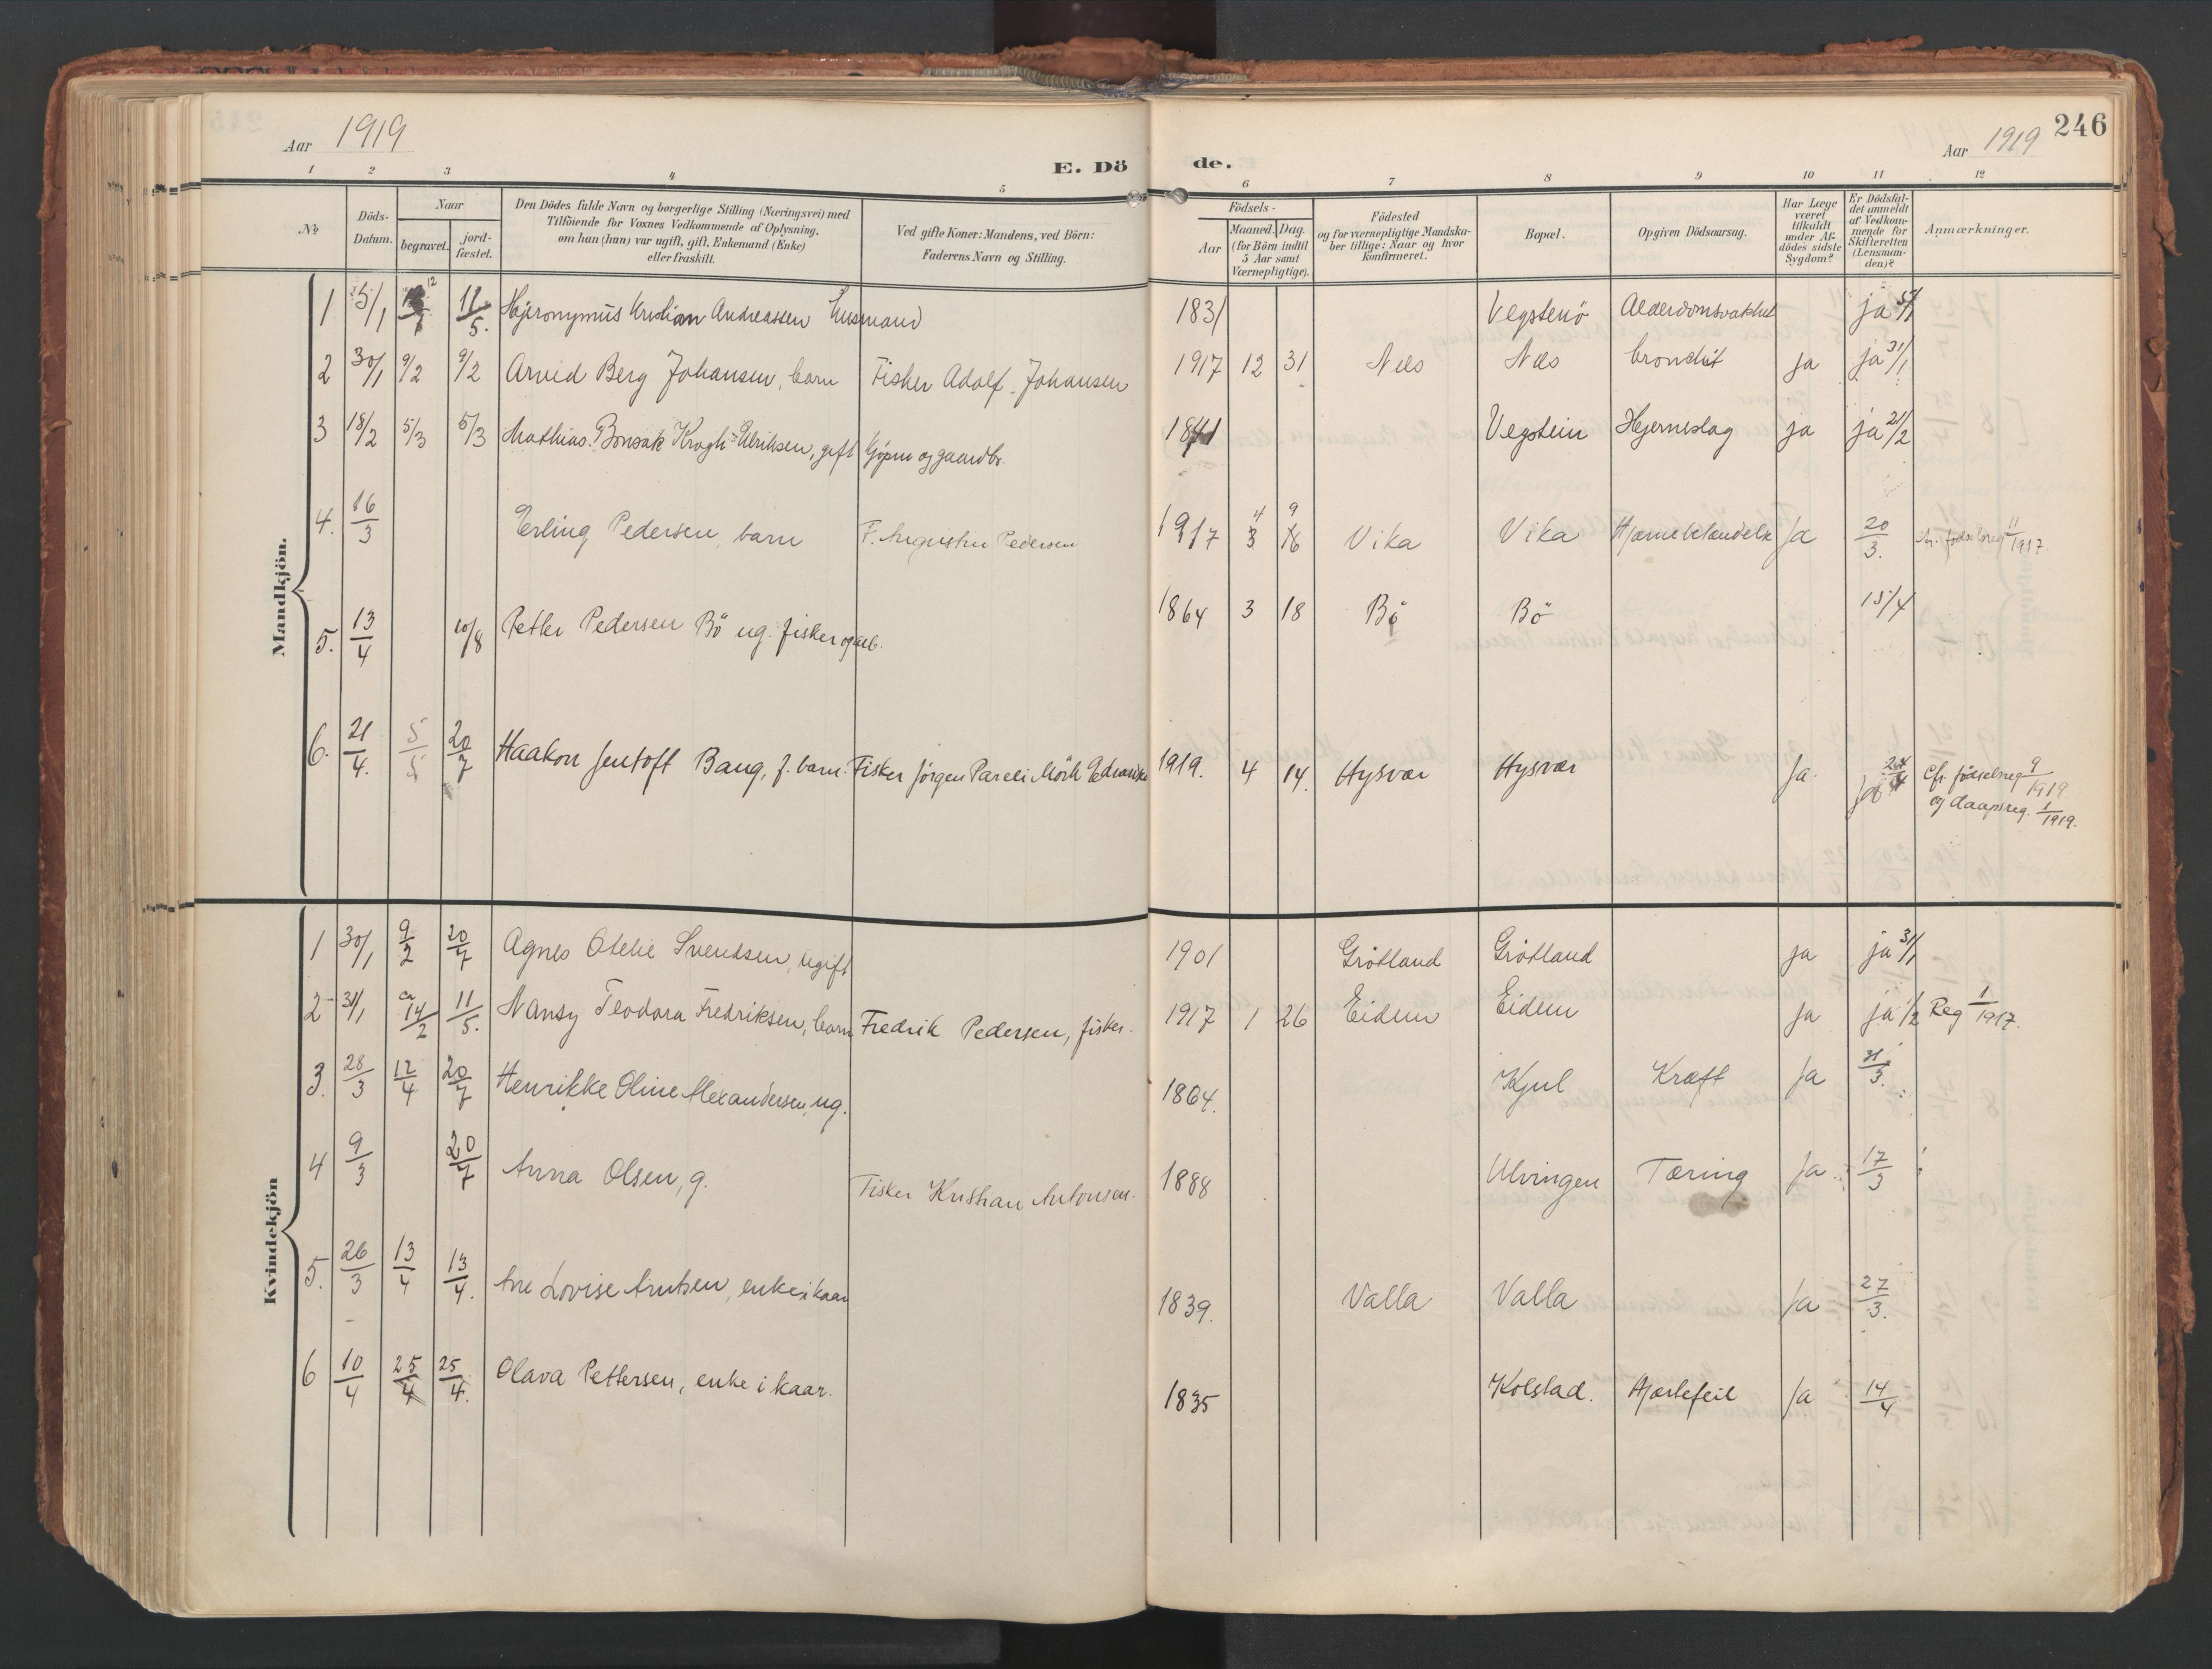 246
Aar 1919
E. Dö de.
Aar 1919
1 2 3 4 5 6 7 8 9 10 11 12
No
Döds-
Datum.
Naar
begravet.
jord-
fæstet.
Den Dödes fulde Navn og borgerlige Stilling (Næringsvei) med
Tilföiende for Voxnes Vedkommende af Oplysning,
om han (hun) var ugift, gift, Enkemand (Enke)
eller fraskilt.
Ved gifte Koner: Mandens, ved Börn:
Faderens Navn og Stilling.
Födsels-
Aar
Maaned. Dag.
(for Börn indtil
5 Aar samt
Værnepligtige).
Födested
og for værnepligtige Mandska-
ber tillige: Naar og hvor
konfirmeret.
Bopæl.
Opgiven Dödsaarsag.
Har Læge
været
tilkaldt
under Af-
dödes sidste
Sygdom?
Er Dödsfal-
det anmeldt
af Vedkom-
mende for
Skifteretten
(Lensman-
den)?
Anmærkninger.
Mandkjön.
1 5/1 12 11/5. Hjeronymus Kristian Andreassen Husmand 1831 Vegstenö Alderdomsvakhet ja 5/1
2 30/1 9/2 9/2 Arvid Berg Johansen, barn Fisker Adolf Johansen 1917 12 31 Nes Nes bronchit ja ja 31/1
3 18/2 5/3 5/3 Mathias Bonsak Krogh-Ulriksen, gift Kjöpm og gaardbr. 1841 Vegstein Hjerneslag ja ja 21/2
4. 16/3 Erling Pedersen, barn F. Augustin Pedersen 1917 4 3 9 16 Vika Vika Hjernebetændelse Ja 20/3. cfr. födselsreg 11/1917
5. 13/4 10/8 Petter Pedersen Bö ug. fisker og arb. 1864 3 18 Bö Bö 15/4
6. 21/4. 5/5 20/7 Haakon Jentoft Bang, f. barn. Fisker Jörgen Pareli Mörk Edvardsen 1919. 4 14. Hysvær Hysvær Ja. Ja 24/4 Cfr. födselsreg 9/1919
og daapsreg. 1/1919.
Kvindekjön
1 30/1 9/2 20/7 Agnes Otelie Svendsen, ugift 1901 Grötland Grötland ja ja 31/1
2 31/1 ca 14/2 11/5. Nansy Teodora Fredriksen, barn Fredrik Pedersen, fisker. 1917 1 26 Eidem Eidem ja ja 1/2 Reg 1/1917.
3. 28/3 12/4 20/7 Henrikke Oline Alexandersen, ug. 1864. Kjul Kræft Ja 31/3.
4 9/3 20/7 Anna Olsen, g. Fisker Kristian Antonsen. 1888 Ulvingen Tæring Ja 17/3
5. 26/3 13/4 13/4. Ane Lovise Arntsen, enke i kaar 1839. Valla Valla Ja 27/3.
6 10/4 25/4 25/4. Olava Pettersen, enke i kaar. 1835 Kolstad. Hjertefeil Ja 14/4